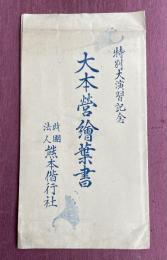 特別大演習記念
大本營繪葉書
財團法人熊本偕行社